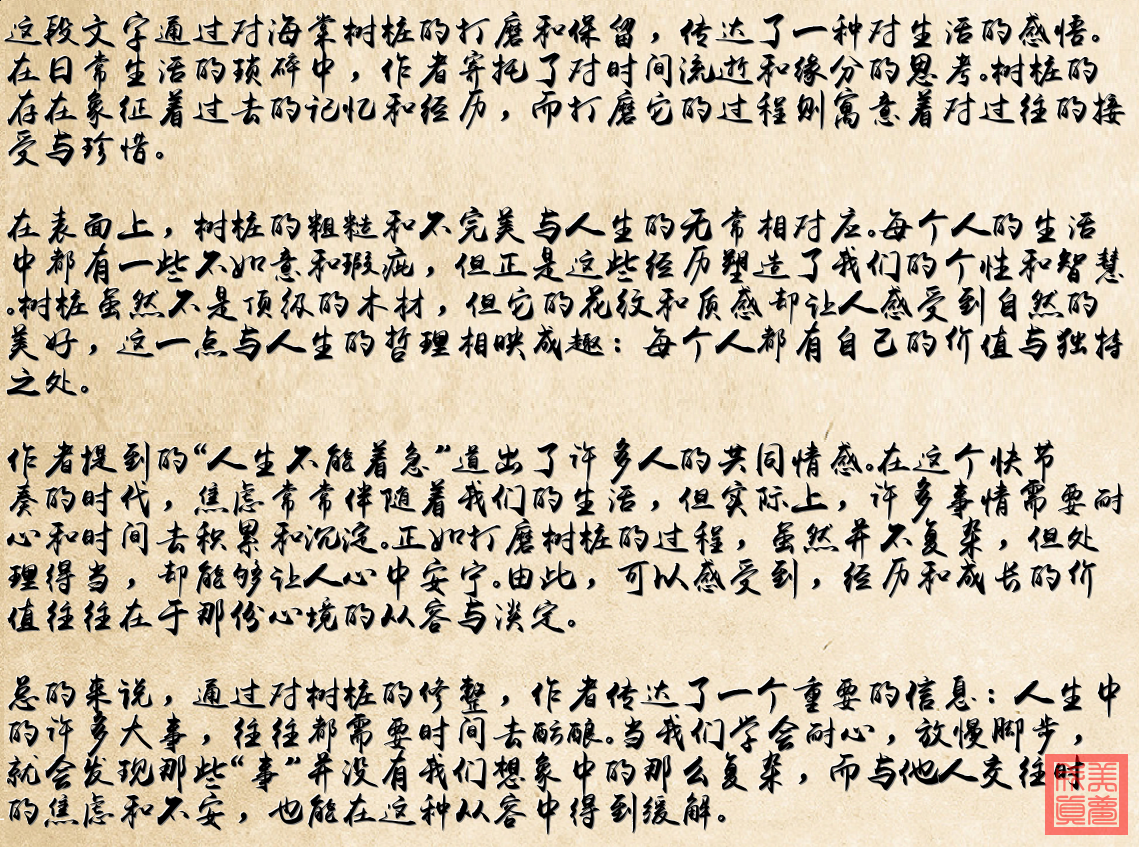 这段文字通过对海棠树桩的打磨和保留，传达了一种对生活的感悟。
在日常生活的琐碎中，作者寄托了对时间流逝和缘分的思考。树桩的
存在象征着过去的记忆和经历，而打磨它的过程则寓意着对过往的接
受与珍惜。
在表面上，树桩的粗糙和不完美与人生的无常相对应。每个人的生活
中都有一些不如意和瑕疵，但正是这些经历塑造了我们的个性和智慧
。树桩虽然不是顶级的木材，但它的花纹和质感却让人感受到自然的
美好，这一点与人生的哲理相映成趣：每个人都有自己的价值与独特
之处。
作者提到的“人生不能着急”道出了许多人的共同情感。在这个快节
奏的时代，焦虑常常伴随着我们的生活，但实际上，许多事情需要耐
心和时间去积累和沉淀。正如打磨树桩的过程，虽然并不复杂，但处
理得当，却能够让人心中安宁。由此，可以感受到，经历和成长的价
值往往在于那份心境的从容与淡定。
总的来说，通过对树桩的修整，作者传达了一个重要的信息：人生中
的许多大事，往往都需要时间去酝酿。当我们学会耐心，放慢脚步，
就会发现那些“事”并没有我们想象中的那么复杂，而与他人交往时
的焦虑和不安，也能在这种从容中得到缓解。